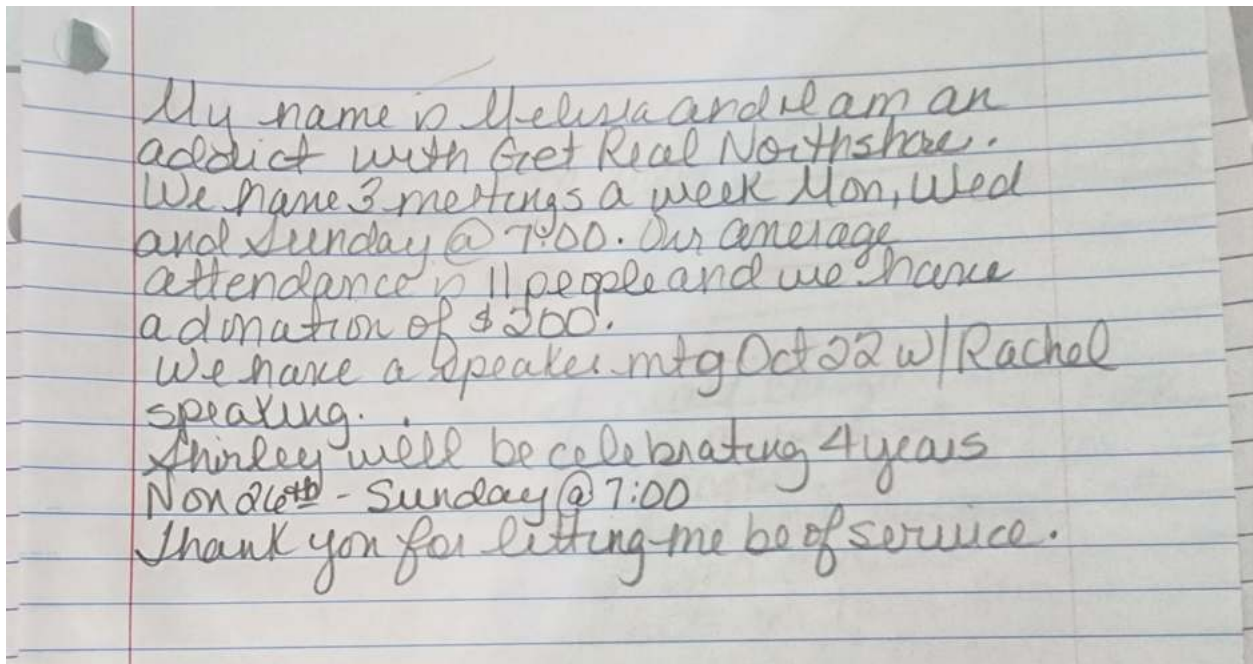 My name is Melissa and I am an
addict with Get Real Northshore.
We have 3 meetings a week Mon, Wed
and Sunday @ 7:00. Our average
attendance is 11 people and we have
a donation of $200.
We have a speaker mtg Oct 22 w/ Rachel
speaking.
Shirley will be celebrating 4 years
Nov 26th - Sunday @ 7:00
Thank you for letting me be of service.